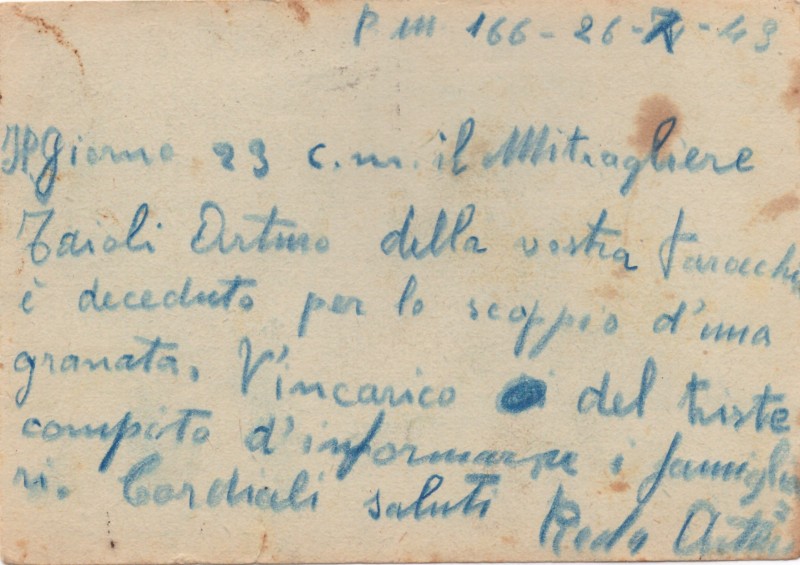 P M 166 - 26 - - 43
Il Giorno 23 c.m. il Mitragliere
Taioli Arturo della vostra Parocchia
è deceduto per lo scoppio d'una
granata. V'incarico del triste
compito d'informare i famiglia
ri. Cordiali saluti